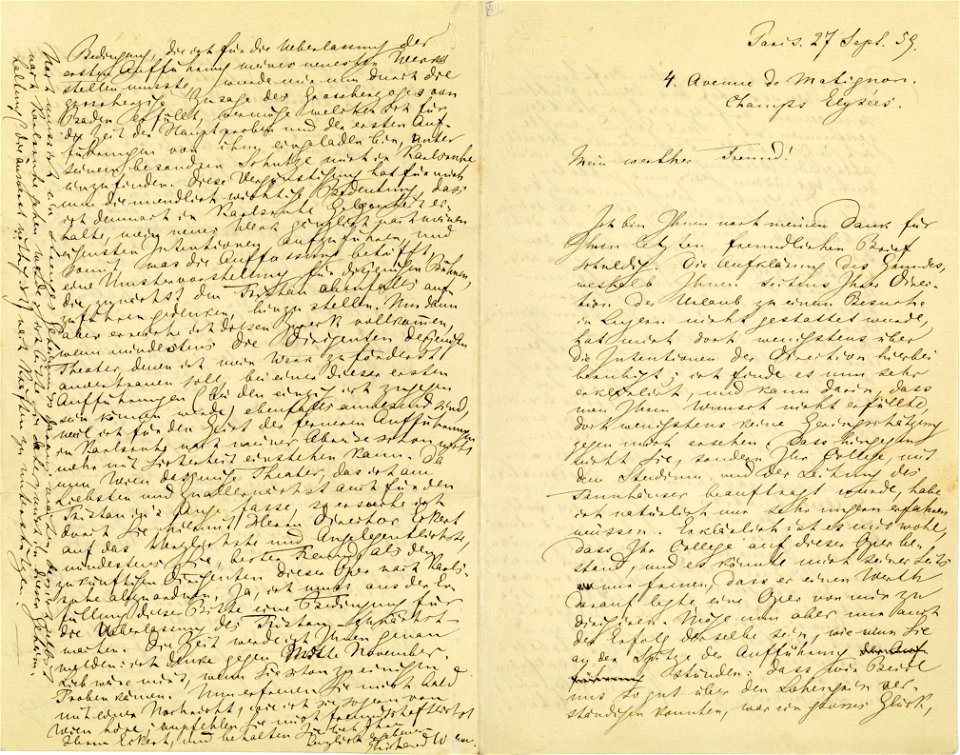 Paris. 27 Sept. 59.
4 Avenue de Matignon.
Champs Elysées.
Mein werther Freund!
Ich bin Ihnen noch meinen Dank für
Ihren letzten freundlichen Brief
schuldig. Die Aufklärung des Grundes,
weshalb Ihnen seitens Ihrer Direc-
tion der Urlaub zu einem Besuche
in Luzern nicht gestattet wurde,
hat mich doch wenigstens über
die Intentionen der Direction hierbei
beruhigt: ich finde es nun sehr
erklärlich, und kann darin, dass
man Ihren Wunsch nicht erfüllte,
doch wenigstens keine Geringschätzung
gegen mich ersehen. Dass hingegen
nicht Sie, sondern Ihr College, mit
dem Studium und der Leitung des
Tannhäuser beauftragt wurde, habe
ich natürlich nur sehr ungern erfahren
müssen. Erklärlich ist es mir wohl,
dass Ihr College auf dieser Oper be-
stand, und es könnte mich seiner Seits
nur freuen, dass er einen Werth
darauf legte eine Oper von mir zu
dirigiren. Möge nun aber nun auch
der Erfolg derselbe sein, wie wenn Sie
an der Spitze der Aufführung
stünden: dass wir Beide
uns so gut über den Lohengrin ver-
ständigen konnten, war ein grosses Glück,
Bedingung, die ich für die Ueberlassung der
ersten Aufführung meines neuesten Werkes
stellen musste, wurde mir nun durch die
grossherzige Zusage des Grossherzoges von
Baden erfüllt, vermöge welcher ich für
die Zeit der Hauptproben und der ersten Auf-
führungen von ihm eingeladen bin, unter
seinem besondren Schutze mich in Karlsruhe
einzufinden. Diese Vergünstigung hat für mich
nun die unendlich wichtige Bedeutung, dass
ich demnach in Karlsruhe Gelegenheit er-
halte, mein neues Werk gänzlich nach meinen
eigensten Intentionen aufzuführen, und
somit, was die Auffassung betrifft,
eine Mustervorstellung für diejenigen Bühnen,
die zunächst den Tristan ebenfalls auf-
zuführen gedenken, hinzustellen. Nun dann
aber erreiche ich diesen Zweck vollkommen,
wenn mindestens die Dirigenten derjenigen
Theater, denen ich mein Werk zu förderst
anvertrauen soll, bei einer dieser ersten
Aufführungen (bei den einzig ich zugegen
sein können werde) ebenfalls anwesend sind,
weil ich für den Geist der ferneren Aufführungen
in Karlsruhe nach meiner Abreise schon nicht
mehr mit Sicherheit einstehen kann. Da
nun Wien dasjenige Theater, das ich am
liebsten und zuallernächst auch für den
Tristan in's Auge fasse, so ersuche ich
durch Sie hiermit Herrn Director Eckert
auf das Herzlichste und Angelegentlichste,
mindestens Sie, bester Freund, als den
zukünftigen Dirigenten dieser Oper nach Karls-
ruhe abzuordnen. Ja, ich muss aus der Er-
füllung dieser Bitte eine Bedingung für
die Ueberlassung des Tristan
machen. Die Zeit werde ich Ihnen genau
melden: ich denke gegen Mitte November.
Lieb wäre mir's, wenn Sie schon zu einigen
Proben kämen. Nun erfreuen Sie mich bald
mit einer Nachricht, wie ich sie so gern von
Wien höre, empfehlen Sie mich freundschaftlichst
Herrn Eckert, und behalten Sie lieb
Richard W